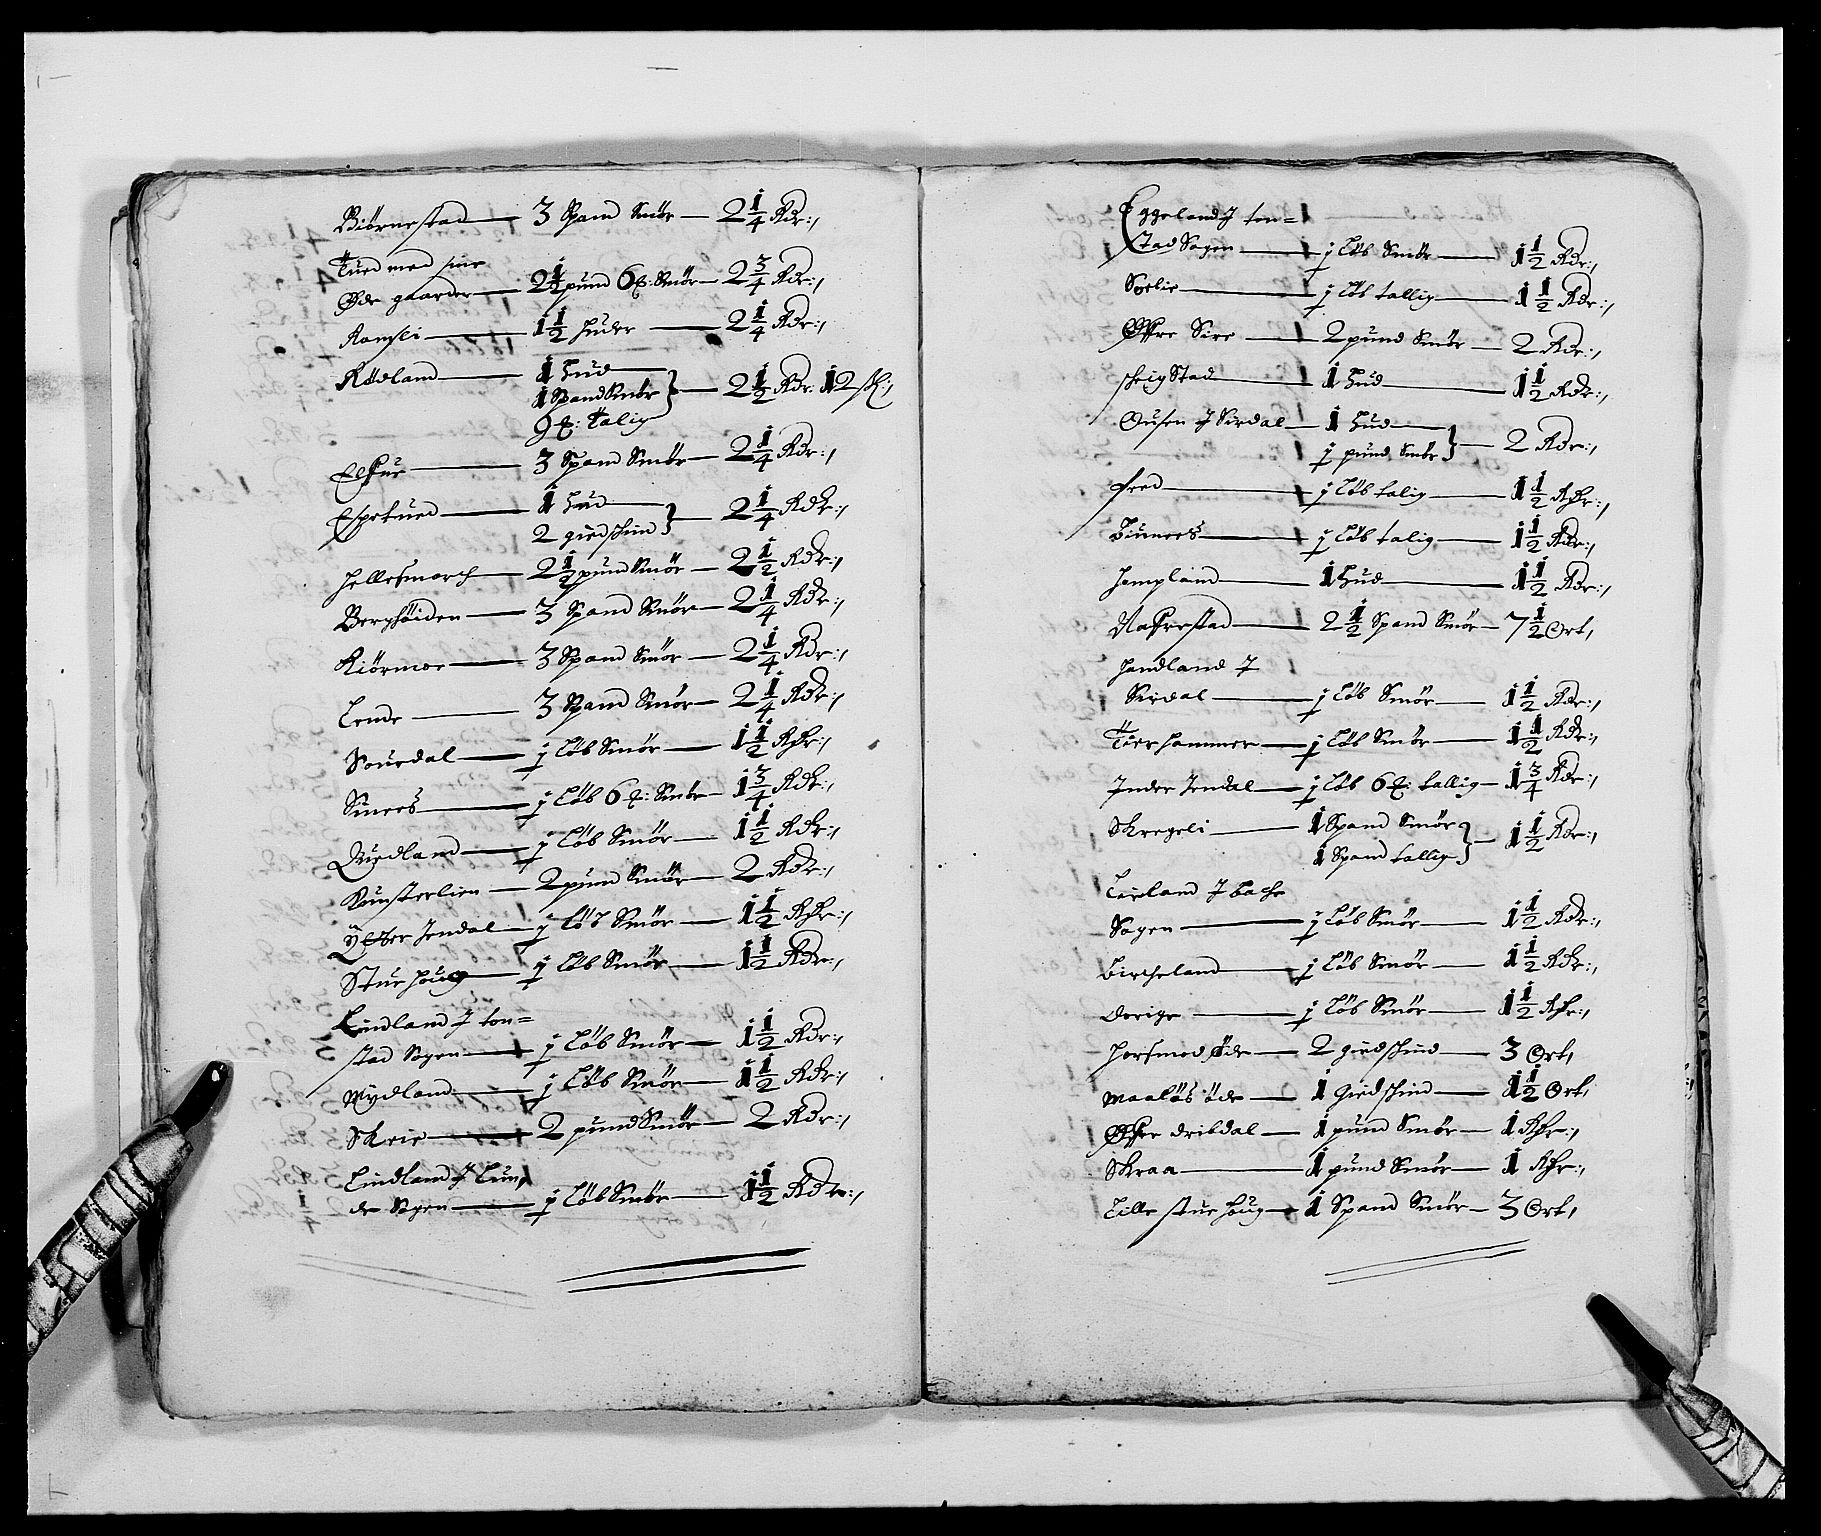 Biørnestad — 3 Spand Smör — 2 1/4 Rdr:,
Tued med sine
Øde gaarder — 2 1/2 pund 6 : Smör — 2 3/4 Rdr:,
Ramsli — 1 1/2 huder — 2 1/4 Rdr:,
Rödland — 1 hud
1 Spand Smör } — 2 1/2 Rdr: 12 sk:,
9 : talig
3 Spand Smör — 2 1/4 Rdr:,
Espetued — 1 hud
2 giedschind } — 2 1/4 Rdr:,
Hellesmarch — 2 1/2 pund Smör — 2 1/2 Rdr:,
Berghöiden — 3 Spand Smör — 2 1/4 Rdr:,
Kiörmoe — 3 Spand Smör — 2 1/4 Rdr:,
Lende — 3 Spand Smör — 2 1/4 Rdr:,
Souredal — j Löb Smör — 1 1/2 Rdr:,
Sinnes — j Löb 6 : Smör — 1 3/4 Rdr:,
Quedland — j Löb Smör — 1 1/2 Rdr:,
Kunsterlien — 2 pund Smör — 2 Rdr:,
Ytter Jendal — j Löb Smör — 1 1/2 Rdr:,
Stuehoug — j Löb Smör — 1 1/2 Rdr:,
Lindland J ton=
stad Sogen — j Löb Smör — 1 1/2 Rdr:,
Mydland — j Löb Smör — 1 1/2 Rdr:,
Skeie — 2 pund Smör — 2 Rdr:,
Lindland J Lun,
de Sogen — j Löb Smör — 1 1/2 Rdr:,
Eggeland J ton=
stad Sogen — j Löb Smör — 1 1/2 Rdr:,
Soelie — j Löb tallig — 1 1/2 Rdr:,
Øfre Sire — 2 pund Smör — 2 Rdr:,
scheigStad — 1 hud — 1 1/2 Rdr:,
Ousen J Sirdal — 1 hud
j pund Smör } — 2 Rdr:,
fred — j Löb talig — 1 1/2 Rdr:,
j Löb talig — 1 1/2 Rdr:,
Hompland — 1 hud — 1 1/2 Rdr:,
Nafrestad — 2 1/2 Spand Smör — 7 1/2 Ort,
Handland J
Sirdal — j Löb Smör — 1 1/2 Rdr:,
Tierhammer — j Löb Smör — 1 1/2 Rdr:,
Inder Jendal — j Löb 6 : tallig — 1 3/4 Rdr:,
Skregeli — 1 Spand Smör
1 Spand tallig } — 1 1/2 Rdr:,
J Bache
Sogen — j Löb Smör — 1 1/2 Rdr:,
Bircheland — j Löb Smör — 1 1/2 Rdr:,
Dorige — j Löb Smör — 1 1/2 Rdr:,
Horsmed øde — 2 giedschind — 3 Ort,
Maalös öde — 1 Giedschind — 1 1/2 Ort,
Øfre dribdal — 1 pund Smör — 1 Rdr:,
Skraa — 1 pund Smör — 1 Rdr:,
Lille stuehoug — 1 Spand Smör — 3 Ort,